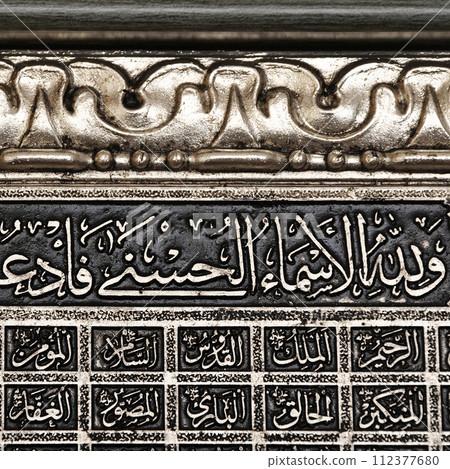 وَلِلَّهِ الْأَسْمَاءُ الْحُسْنَىٰ فَادْعُ
الرحيم الملك القدوس السلام المؤمن
المتكبر الخالق البارئ المصور الغفار
112377680